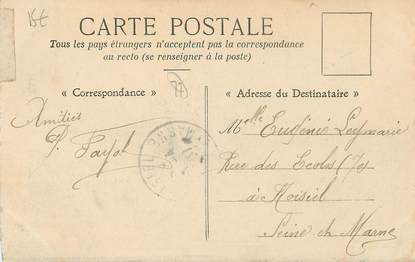 15€
CARTE POSTALE
Tous les pays étrangers n'acceptent pas la correspondance
au recto (se renseigner à la poste)
« Correspondance »
« Adresse du Destinataire »
Amitiés
P. Payol
Melle Eugénie
Rue des Ecoles (70)
à Noisiel
Seine et Marne